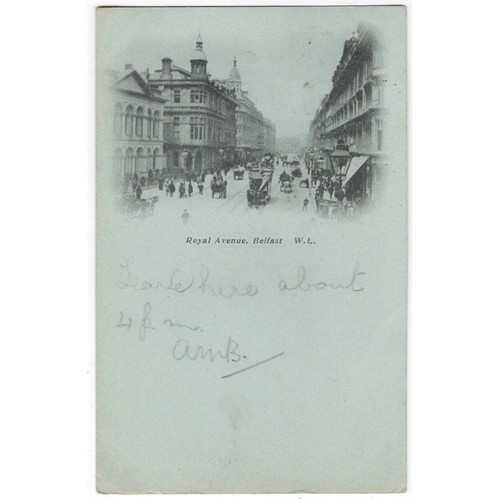 Royal Avenue, Belfast W.L.
Leave here about
4 p.m.
AMB.